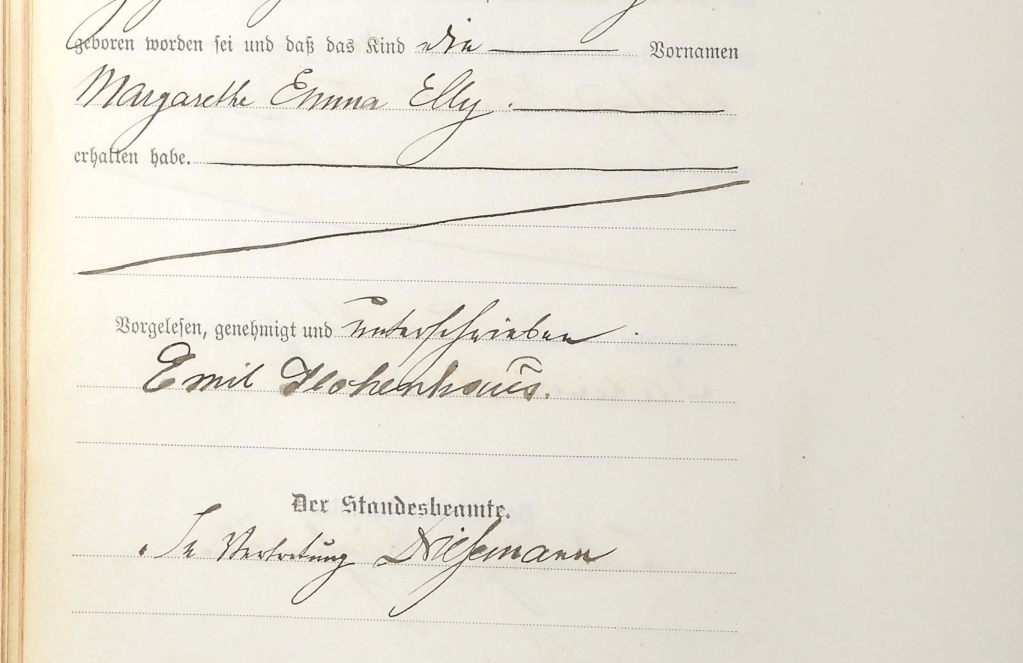 geboren worden sei und daß das Kind die Vornamen
Margarethe Emma Elly.
erhalten habe.
Vorgelesen, genehmigt und unterschrieben.
Emil Hohenhaus.
Der Standesbeamte.
In Vertretung